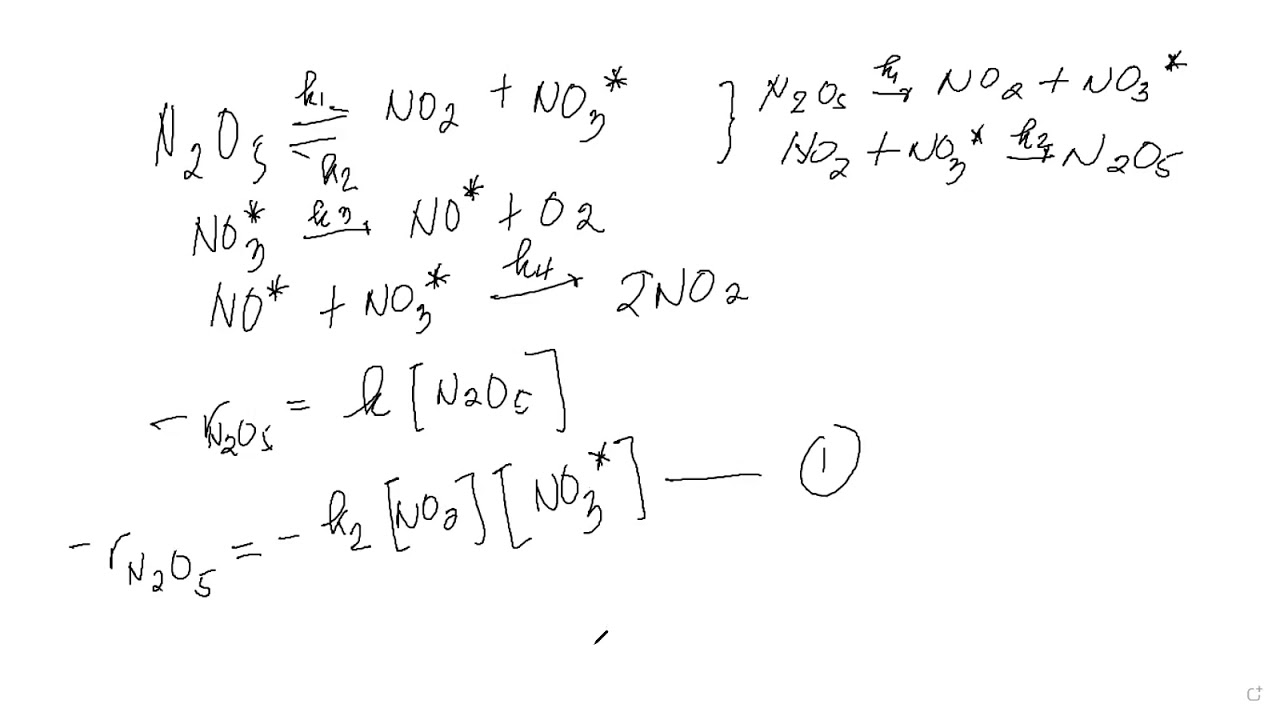 N₂O₅ ⇌ NO₂ + NO₃* k₁ k₂ } N₂O₅ →k₁ NO₂ + NO₃*
NO₂ + NO₃* →k₂ N₂O₅
NO₃* →k₃ NO* + O₂
NO* + NO₃* →k₄ 2NO₂
- r_N₂O₅ = k [N₂O₅]
- r_N₂O₅ = - k₂ [NO₂] [NO₃*] —— ①